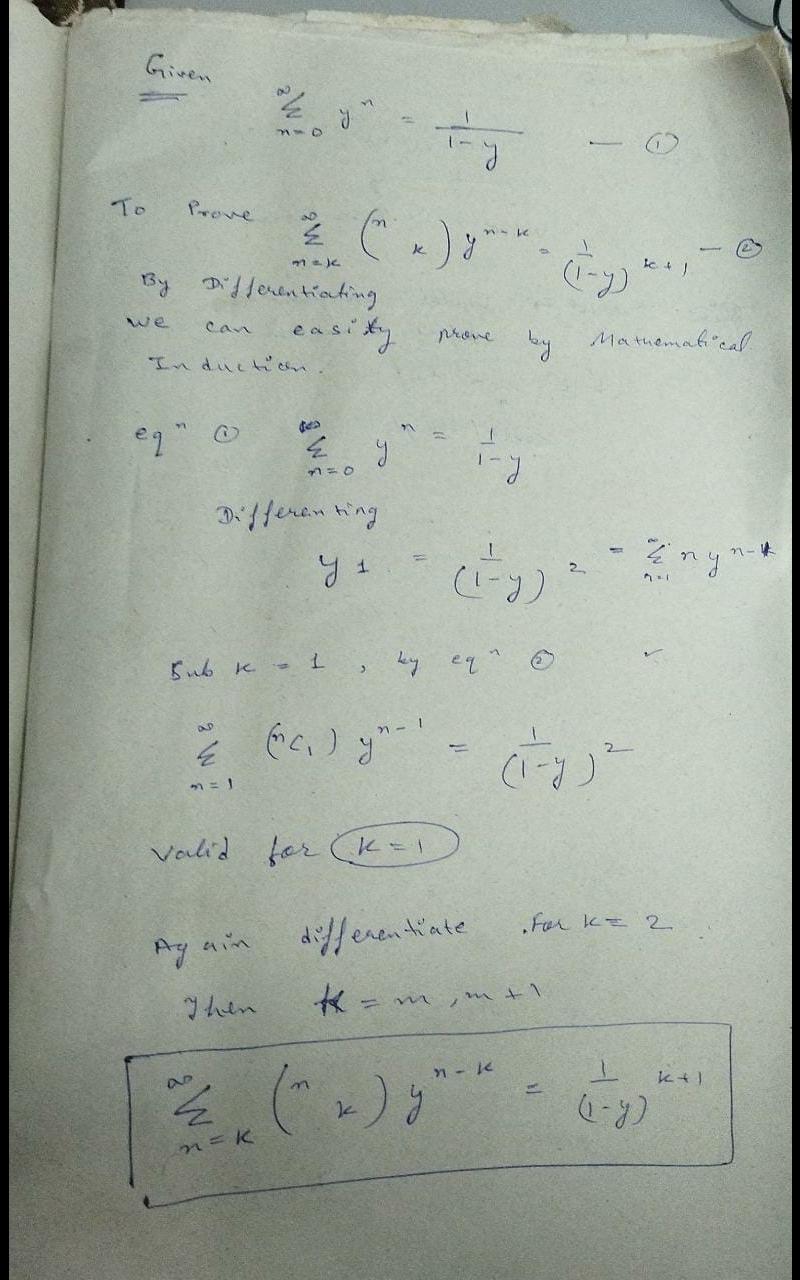 Given
∞ Σ n=0 y^n = 1/(1-y) — ①
To Prove ∞ Σ n=k (n k) y^{n-k} = 1/(1-y)^{k+1} — ②
By Differentiating
we can easily prove by Mathematical
Induction.
eq^n ① ∞ Σ n=0 y^n = 1/(1-y)
Differenting
y1 = 1/(1-y)^2 = ∞ Σ n=1 n y^{n-1}
Sub k = 1, by eq^n ② ✓
∞ Σ n=1 (nC1) y^{n-1} = 1/(1-y)^2
Valid for k=1
Again differentiate. For k=2.
Then k = m, m+1
∞ Σ n=k (n k) y^{n-k} = 1/(1-y)^{k+1}